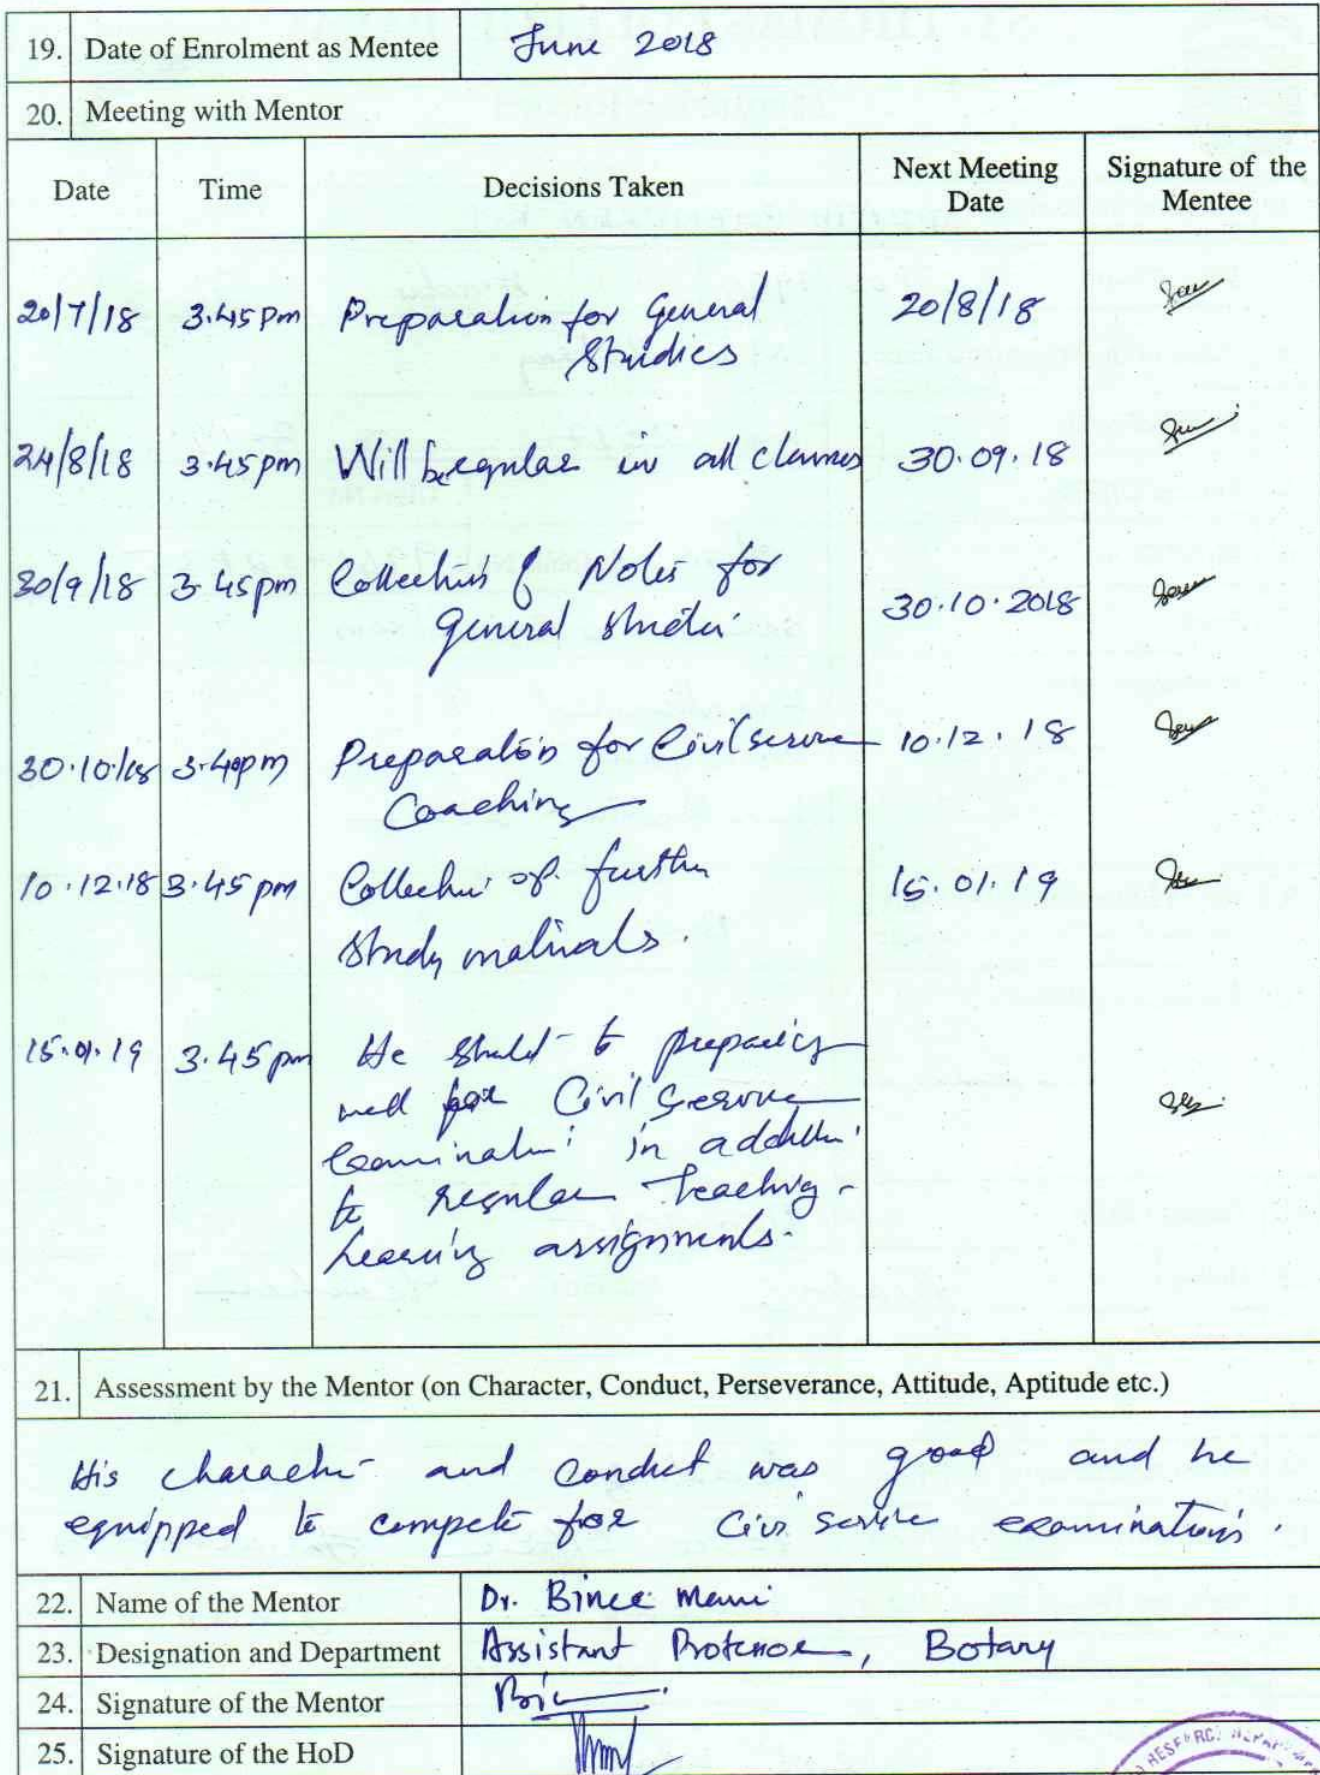 19. Date of Enrolment as Mentee June 2018
20. Meeting with Mentor
Date Time Decisions Taken Next Meeting Date Signature of the Mentee
20/7/18 3.45 pm Preparation for General 20/8/18
Studies
24/8/18 3.45 pm Will be regular in all classes 30.09.18
30/9/18 3.45 pm Collection of Notes for
general studies 30.10.2018
30.10/18 3.40pm Preparation for Civil service 10.12.18
Coaching
10.12.18 3.45 pm Collection of further 15.01.19
study materials.
15.01.19 3.45 pm He to
for Civil Service
Examination in addition
to regular teaching-
learning assignments.
21. Assessment by the Mentor (on Character, Conduct, Perseverance, Attitude, Aptitude etc.)
His character and conduct was good and he
equipped to compete for service examinations.
22. Name of the Mentor Dr. Bince Mani
23. Designation and Department Assistant Professor, Botany
24. Signature of the Mentor
25. Signature of the HoD